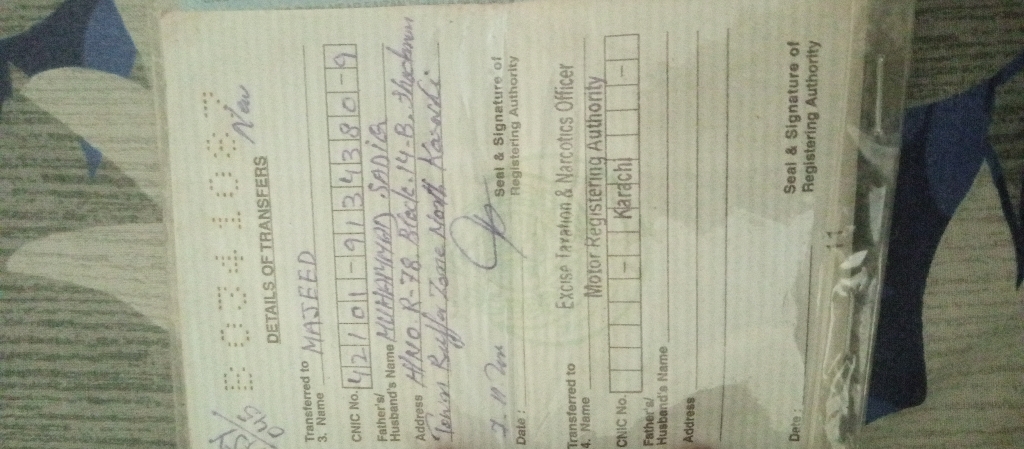 New
DETAILS OF TRANSFERS
Transferred to
3. Name MAJEED
CNIC No. 42101-9134380-9
Father's/
Husband's Name MUHAMMAD SADIQ
Address H/NO R-78 Block.14-B.
Buffer Zone North Karachi
Date :
Seal & Signature of
Registering Authority
Excise Taxation & Narcotics Officer
Transferred to
4. Name
Motor Registering Authority
CNIC No. - Karachi -
Father's/
Husband's Name
Address
Date :
Seal & Signature of
Registering Authority